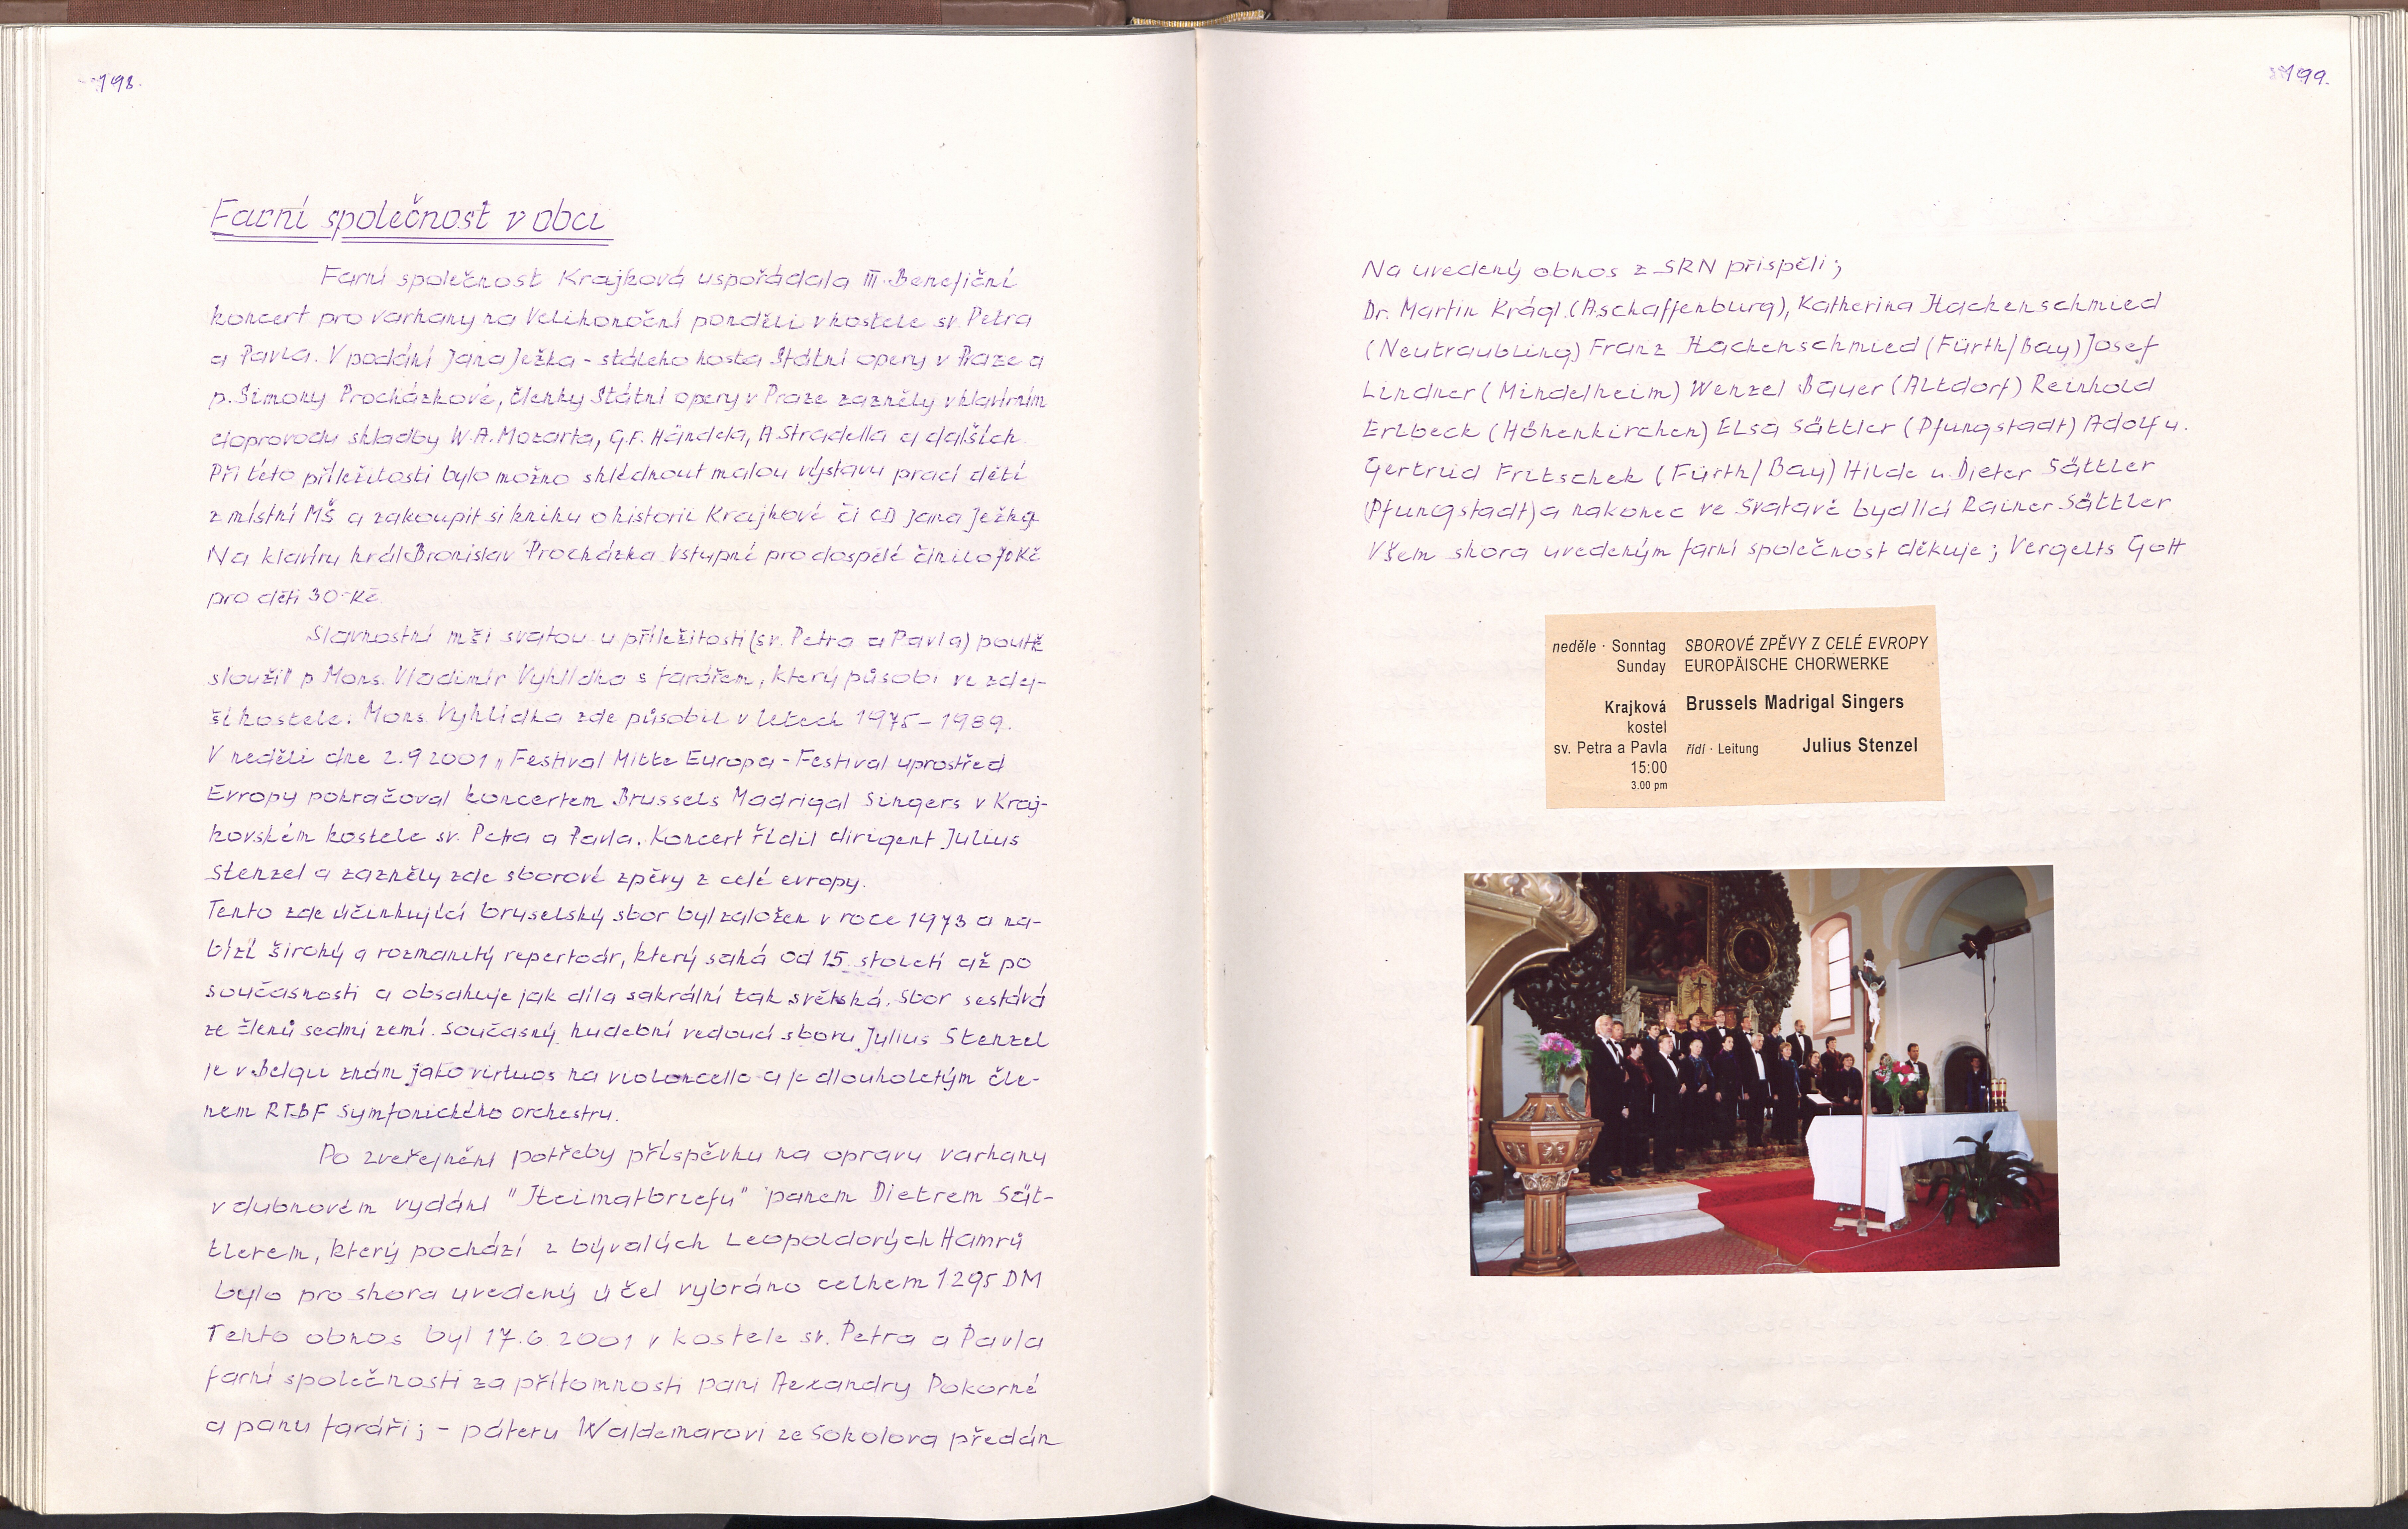 198.
Farní společnost v obci
Farní společnost Krajková uspořádala III. Benefiční
koncert pro varhany na Velikonoční pondělí v kostele sv. Petra
a Pavla. V podání Jana Ježka - stálého hosta Státní opery v Praze a
p. Simony Procházkové, členky Státní opery v Praze zazněly v klavírním
doprovodu skladby W.A. Mozarta, G.F. Händela, A. Stradella a dalších.
Při této příležitosti bylo možno shlédnout malou výstavu prací dětí
z místní MŠ a zakoupit si knihu o historii Krajkové či CD Jana Ježka.
Na klavíru hrál Bronislav Procházka. Vstupné pro dospělé činilo 70 Kč
pro děti 30- Kč.
Slavnostní mši svatou u příležitosti (sv. Petra a Pavla) poutě
sloužil p. Mons. Vladimír Vyhlídka s farářem, který působí ve zdej-
ší kostele. Mons. Vyhlídka zde působil v letech 1975 - 1989.
V neděli dne 2.9 2001 „Festival Mitte Europa - Festival uprostřed
Evropy pokračoval koncertem Brussels Madrigal Singers v Kraj-
kovském kostele sv. Petra a Pavla. Koncert řídil dirigent Julius
Stenzel a zazněly zde sborové zpěvy z celé evropy.
Tento zde účinkující bruselský sbor byl založen v roce 1973 a na-
bízí široký a rozmanitý repertoár, který sahá od 15. století až po
současnosti a obsahuje jak díla sakrální tak světská. Sbor sestává
ze členů sedmi zemí. Současný hudební vedoucí sboru Julius Stenzel
je v Belgii znám jako virtuos na violoncello a je dlouholetým čle-
nem RTBF Symfonického orchestru.
Po zveřejnění potřeby příspěvku na opravu varhany
v dubnovém vydání "Heimatbriefu" panem Dietrem Sät-
tlerem, který pochází z bývalých Leopoldových Hamrů
bylo pro shora uvedený účel vybráno celkem 1295 DM
Tento obnos byl 17.6. 2001 v kostele sv. Petra a Pavla
farní společnosti za přítomnosti paní Alexandry Pokorné
a panu faráři; - páteru Waldemarovi ze Sokolova předán
199.
Na uvedený obnos z SRN přispěli;
Dr. Martin Krágl (Aschaffenburg), Katherina Hackenschmied
(Neutraubling) Franz Hackenschmied (Fürth/Bay) Josef
Lindner (Mindelheim) Wenzel Bayer (Altdorf) Reinhold
Erlbeck (Höhenkirchen) Elsa Sättler (Pfungstadt) Adolf u.
Gertrud Fritschek (Fürth/Bay) Hilde u. Dieter Sättler
(Pfungstadt) a nakonec ve Svatavě bydlící Rainer Sättler
Všem shora uvedeným farní společnost děkuje; Vergelts Gott
neděle · Sonntag SBOROVÉ ZPĚVY Z CELÉ EVROPY
Sunday EUROPÄISCHE CHORWERKE
Krajková Brussels Madrigal Singers
kostel
sv. Petra a Pavla řídí · Leitung Julius Stenzel
15:00
3.00 pm